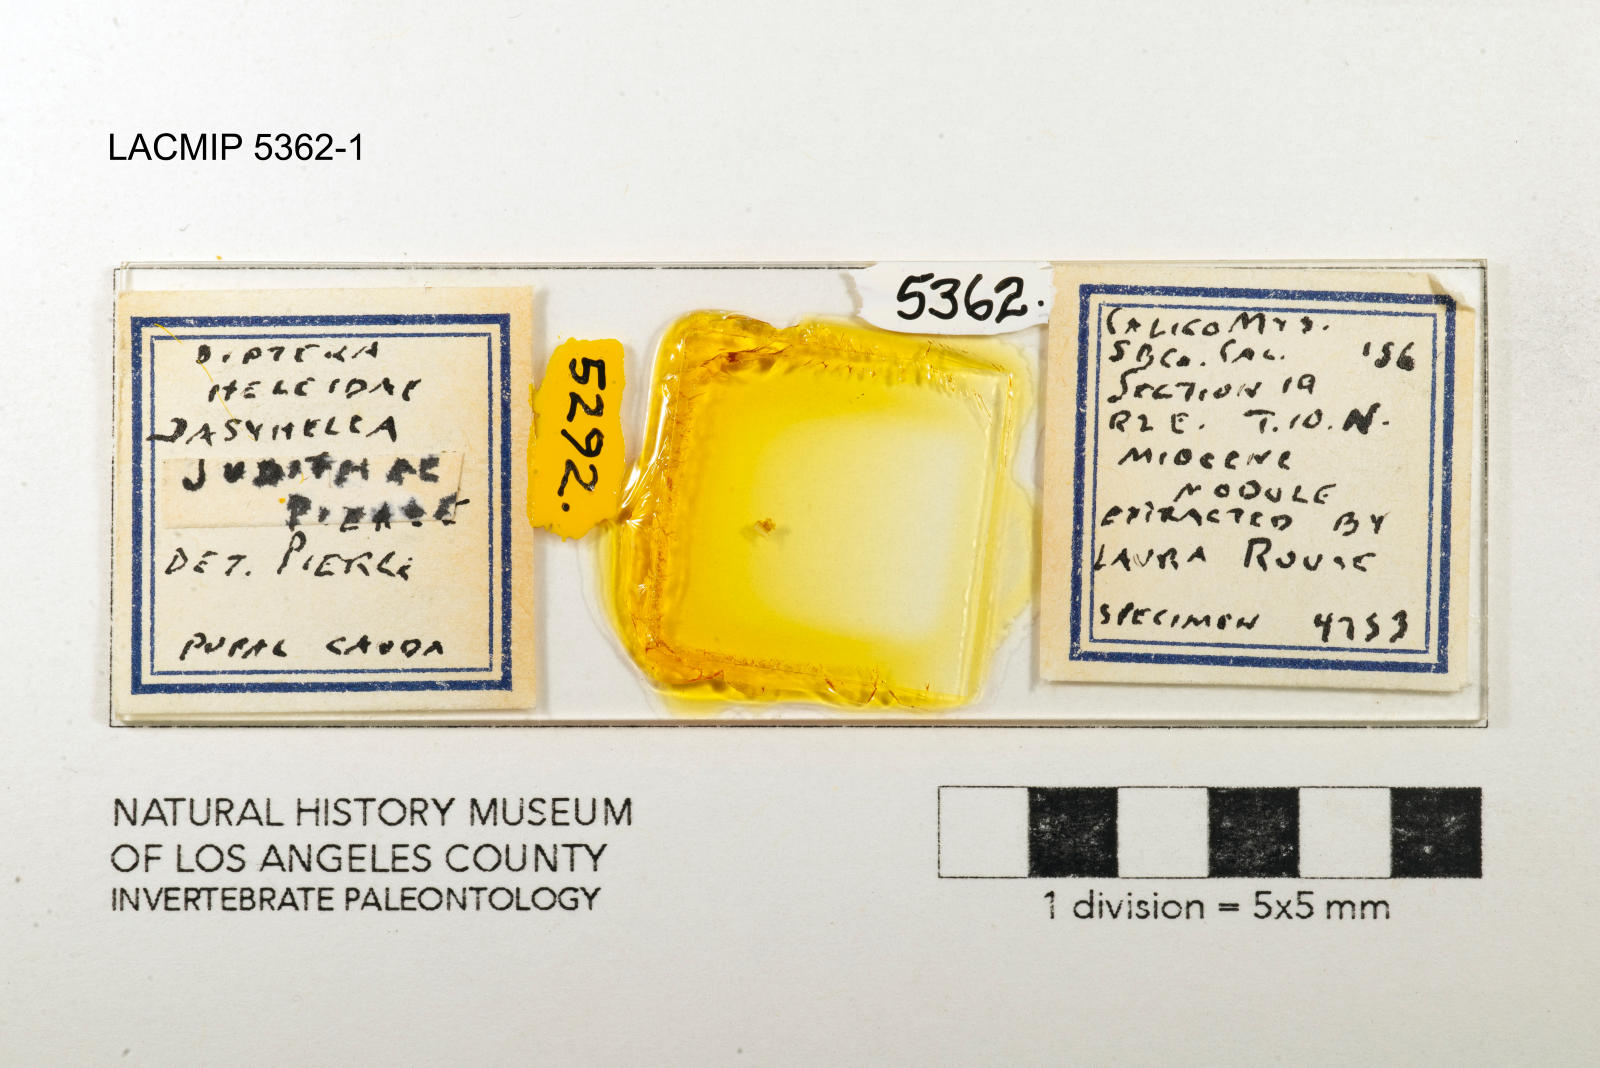 LACMIP 5362-1
DIPTERA
HELEIDAE
DASYHELEA
JUDITHAE
PIERCE
DET. PIERCE
PUPAL CAUDA
5292.
5362.
CALICO MTS.
SBCO. CAL. 156
SECTION 19
R2E. T.10.N.
MIOCENE
NODULE
EXTRACTED BY
LAURA ROUSE
SPECIMEN 4753
NATURAL HISTORY MUSEUM
OF LOS ANGELES COUNTY
INVERTEBRATE PALEONTOLOGY
1 division = 5x5 mm